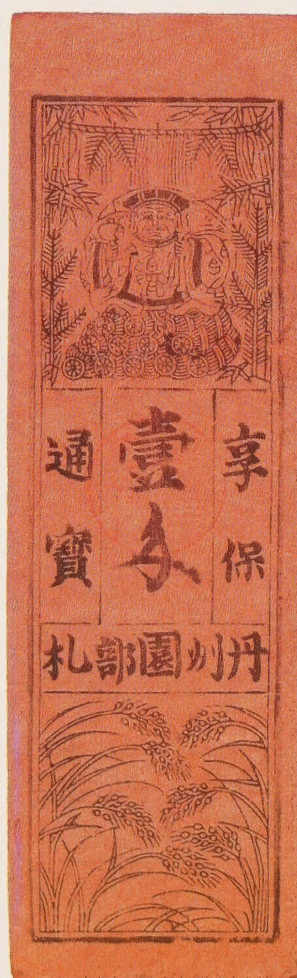 享保
壹匁
通寳
丹州園部札